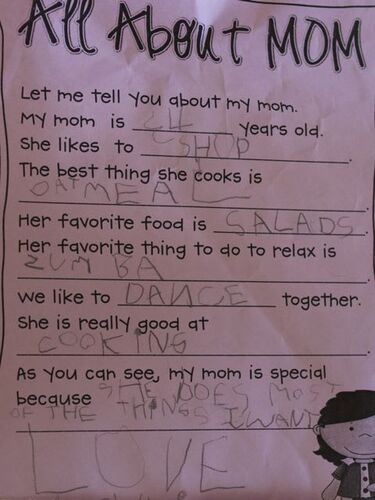 All About MOM
Let me tell you about my mom.
My mom is years old.
She likes to SHOP.
The best thing she cooks is
OATMEAL
Her favorite food is SALADS.
Her favorite thing to do to relax is
ZUMBA.
We like to DANCE together.
She is really good at
COOKING.
As you can see, my mom is special
because SHE DOES MOST
OF THE THINGS I WANT
LOVE